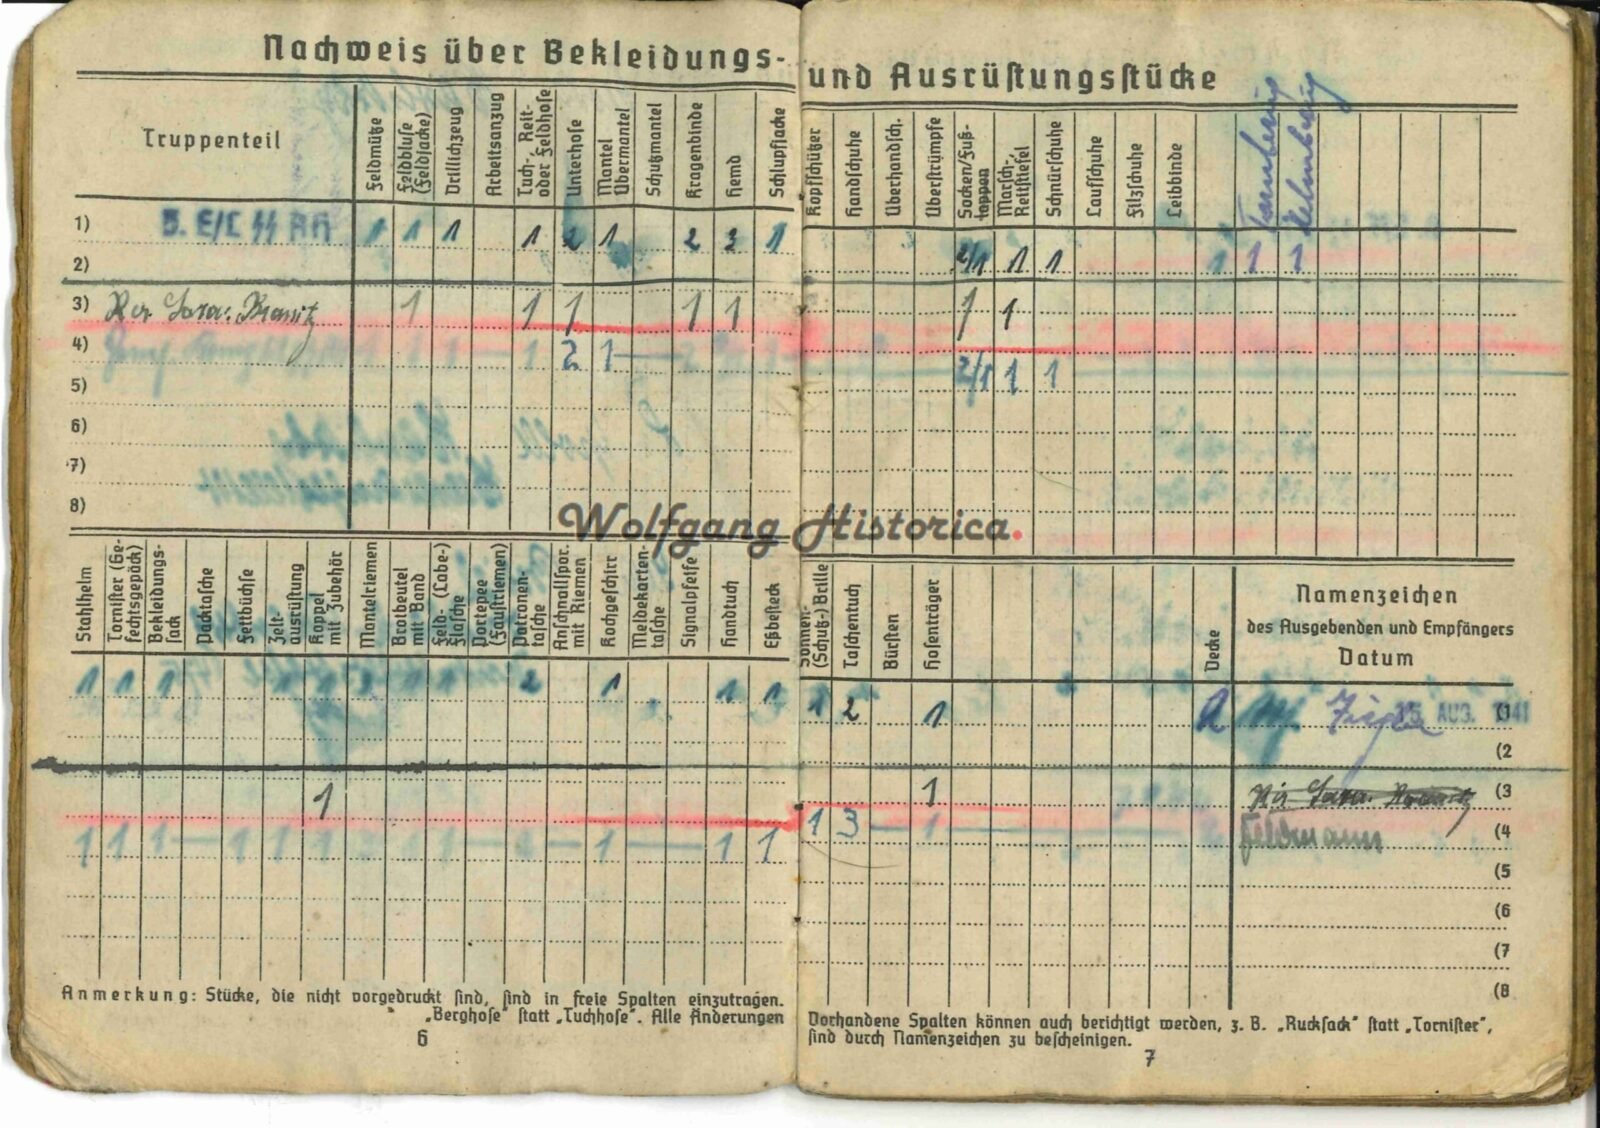 Nachweis über Bekleidungs- und Ausrüstungsstücke
Truppenteil
Feldmütze
Feldbluse (Feldjacke)
Drillichzeug
Arbeitsanzug
Tuch-, Reit- oder Feldhose
Unterhose
Mantel Übermantel
Schutzmantel
Kragenbinde
Hemd
Schlupfjacke
Kopfschützer
Handschuhe
Überhandsch.
Überstrümpfe
Socken/Fuß-lappen
Marsch-, Reitstiefel
Schnürschuhe
Laufschuhe
Filzschuhe
Leibbinde
Tarnbezug
1) 1 1 1 1 2 1 2 3 1 2/1 1 1 1 1 1
2)
3) Res. Laza. 1 1 1 1 1 1 1
4) 1 1 1 2 1 2/1 1 1
5)
6)
7)
8)
Wolfgang Historica.
Stahlhelm
Tornister (Ge-fechtsgepäck)
Bekleidungs-sack
Packtasche
Fettbüchse
Zelt-ausrüstung
Koppel mit Zubehör
Mantelriemen
Brotbeutel mit Band
Feld- (Labe-) flasche
Portepee (Faustriemen)
Patronen-tasche
Anschnallspor. mit Riemen
Kochgeschirr
Meldekarten-tasche
Signalpfeife
Handtuch
Eßbesteck
Sonnen- (Schutz-) Brille
Taschentuch
Bürsten
Hosenträger
Decke
Namenzeichen
des Ausgebenden und Empfängers
Datum
1 1 1 1 1 2 1 1 2 1 1 1 1 2 1 AUG. 1941 (1
(2
1 1 (3
1 1 1 1 1 1 1 1 1 3 1 Feldmann (4
(5
(6
(7
(8
Anmerkung: Stücke, die nicht vorgedruckt sind, sind in freie Spalten einzutragen.
„Berghose“ statt „Tuchhose“. Alle Änderungen
6
Vorhandene Spalten können auch berichtigt werden, z. B. „Rucksack“ statt „Tornister“,
sind durch Namenzeichen zu bescheinigen.
7